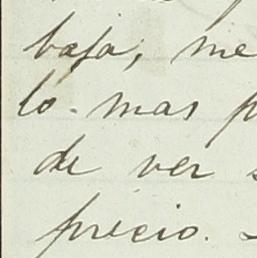 baja, me
lo mas p
de ver s
precio.